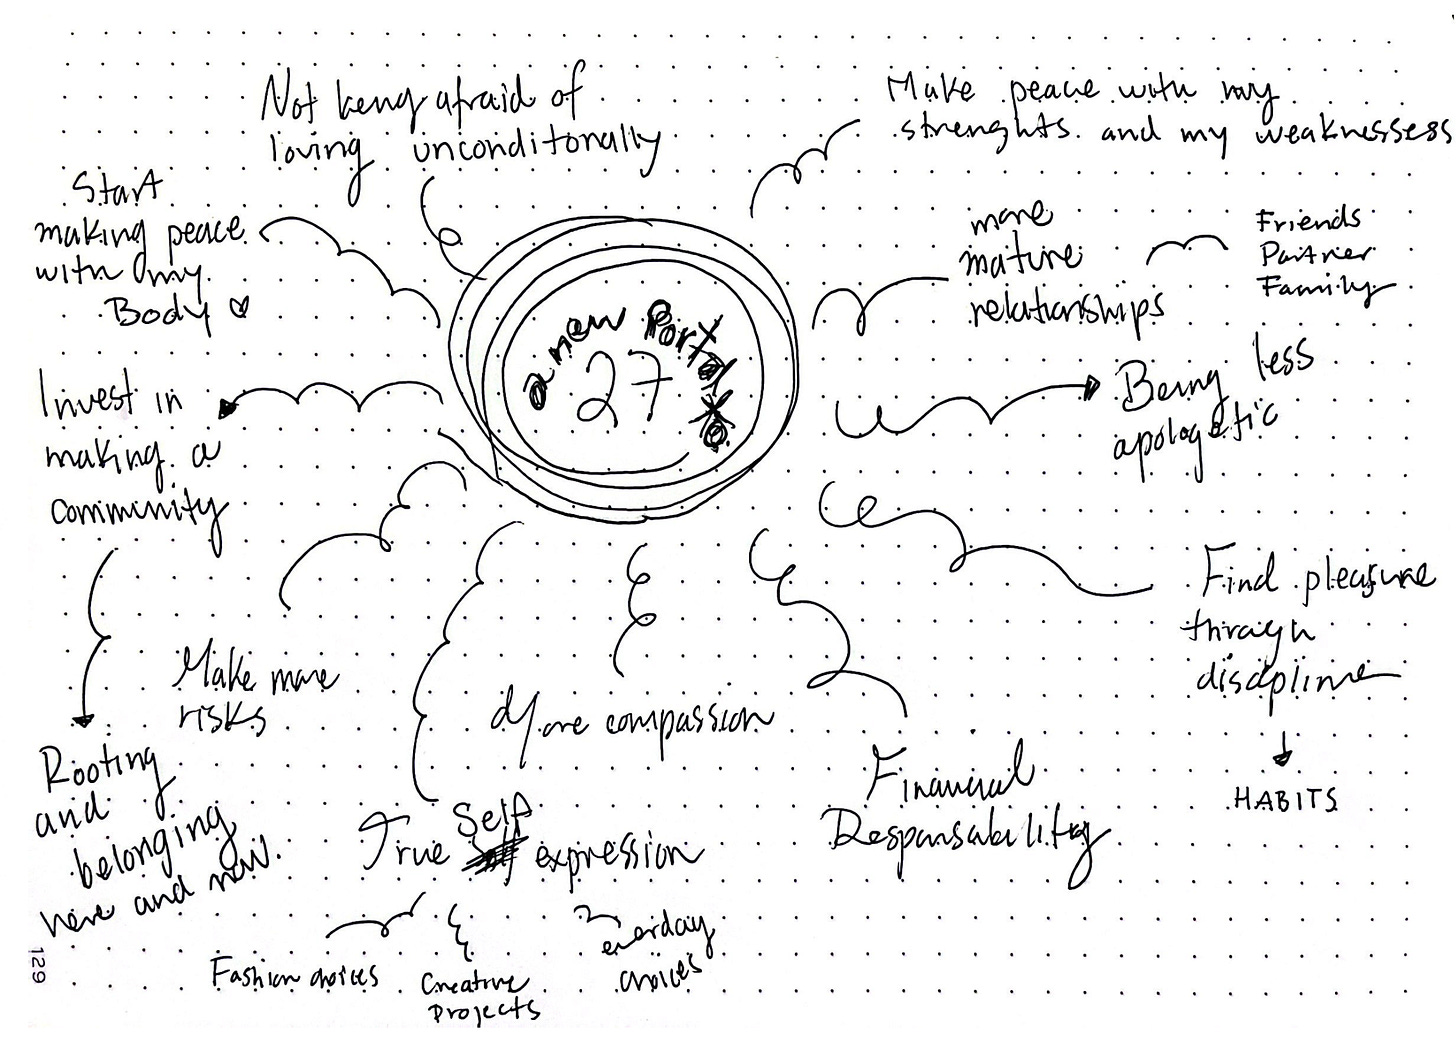 Not being afraid of
loving unconditonally
Make peace with my
strenghts and my weaknessess
Start
making peace
with my
Body
more
mature
relationships
Friends
Partner
Family
a new Portal to
27
Being less
apologetic
Invest in
making a
community
Find pleasure
through
discipline
HABITS
Make more
risks
More compassion
Financial
Responsability
Rooting
and
belonging
here and now.
True Self expression
Fashion choices
Creative
Projects
everday
choices
129